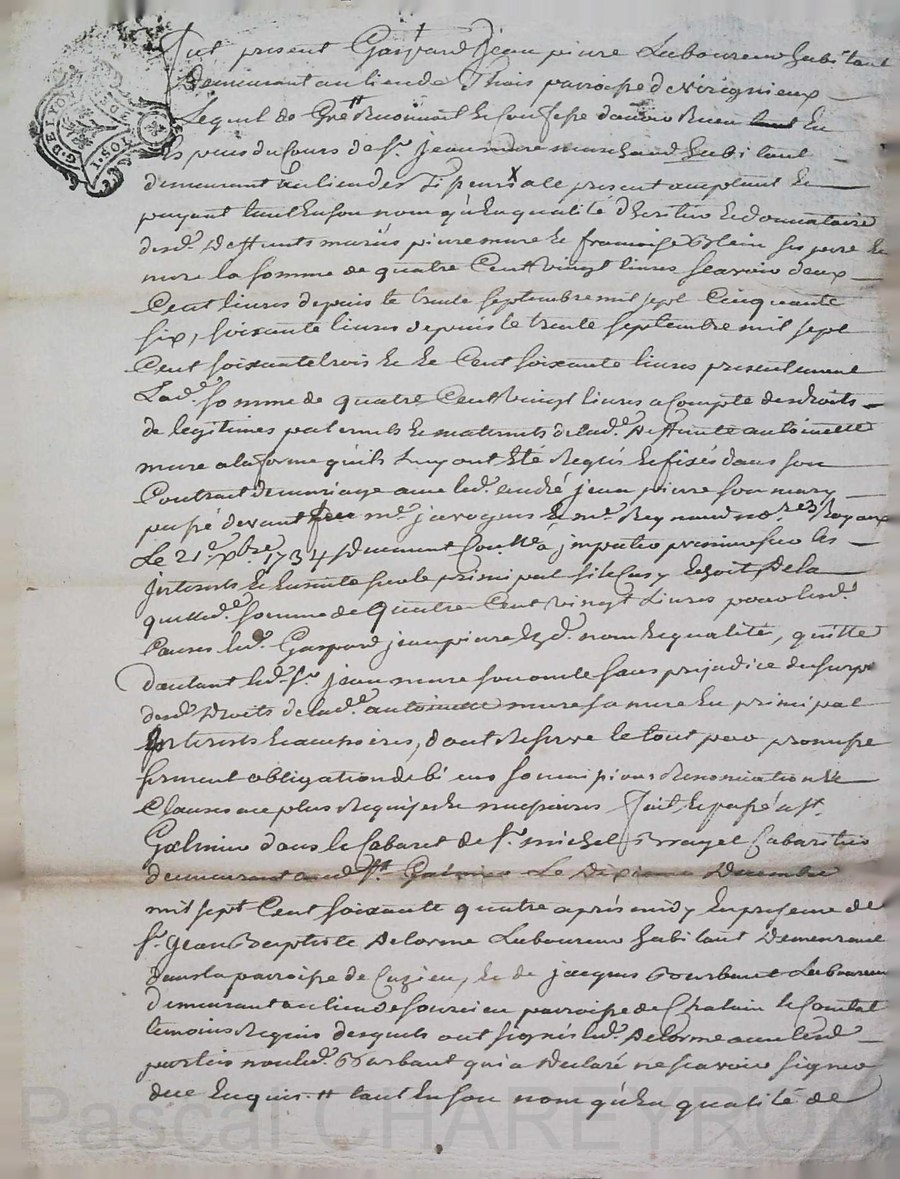 G. DE LYON
Fut present Gaspard Jean pierre Laboureur habitant
Demeurant au lieu de Thais parroisse de virignieux
Lequel de Gré Reconnoit et Confesse d'avoir Receu en
Espece du Cours de Sr. Jean mure marchand habitant
demeurant au lieu des present acceptant et
payant tant En son nom qu'En qualité d'heritier et donnataire
desd. Deffunts pierre mure et francoise ses pere et
mere la somme de quatre Cent vingt livres scavoir deux
Cent livres depuis le trente septembre mil sept Cinquante
six, soixante livres depuis le trente septembre mil sept
Cent soixante trois Et le Cent soixante livres presentement
Lad.e somme de quatre Cent vingt livres a Compte des droits
de legitimes paternels et maternels de lad.e Deffunte antoinette
mure a la forme qu'ils luy ont Eté Regles Et fixés dans son
Contract de mariage avec led. andré jean pierre son mary
passé devant me. javogues Et me. Reynaud no.res Royaux
Le 21e xbre 1734 a imputer premier sur les
jnterets Et Ensuite sur le principal si le Cas y Echoit De la
quelle somme de Quatre Cent vingt Livres pour lesd.
Causes led. Gaspard jean pierre Esd. nom Et qualité, quitte
dautant led. Sr. jean mure son oncle sans prejudice du surp
desd. Droits de lad.e antoinette mure sa mere En principal
jnterets Et accessoires, dont Reserve le tout par promesse
serment obligation de biens soumissions Renonciation Et
Clauses au plus Requises Et necessaires Fait Et passé a St.
Galmier dans le Cabaret de Sr. michel Cabaretier
demeurant aud. St. Galmier Le Dixieme Decembre
mil sept Cent soixante quatre aprés midy En presence de
Sr. Jean Baptiste Delorme Laboureur habitant Demeurant
dans la parroisse de Cuzieu, Et de jacques Laboureur
demeurant au lieu de parroisse de Chalain le Comtal
temoins Requis desquels ont signés led. Delorme avec lesd.
parties non led. qui a Declaré ne scavoir signer
de ce Enquis # tant En son nom qu'En qualité de
Pascal CHAREYRON